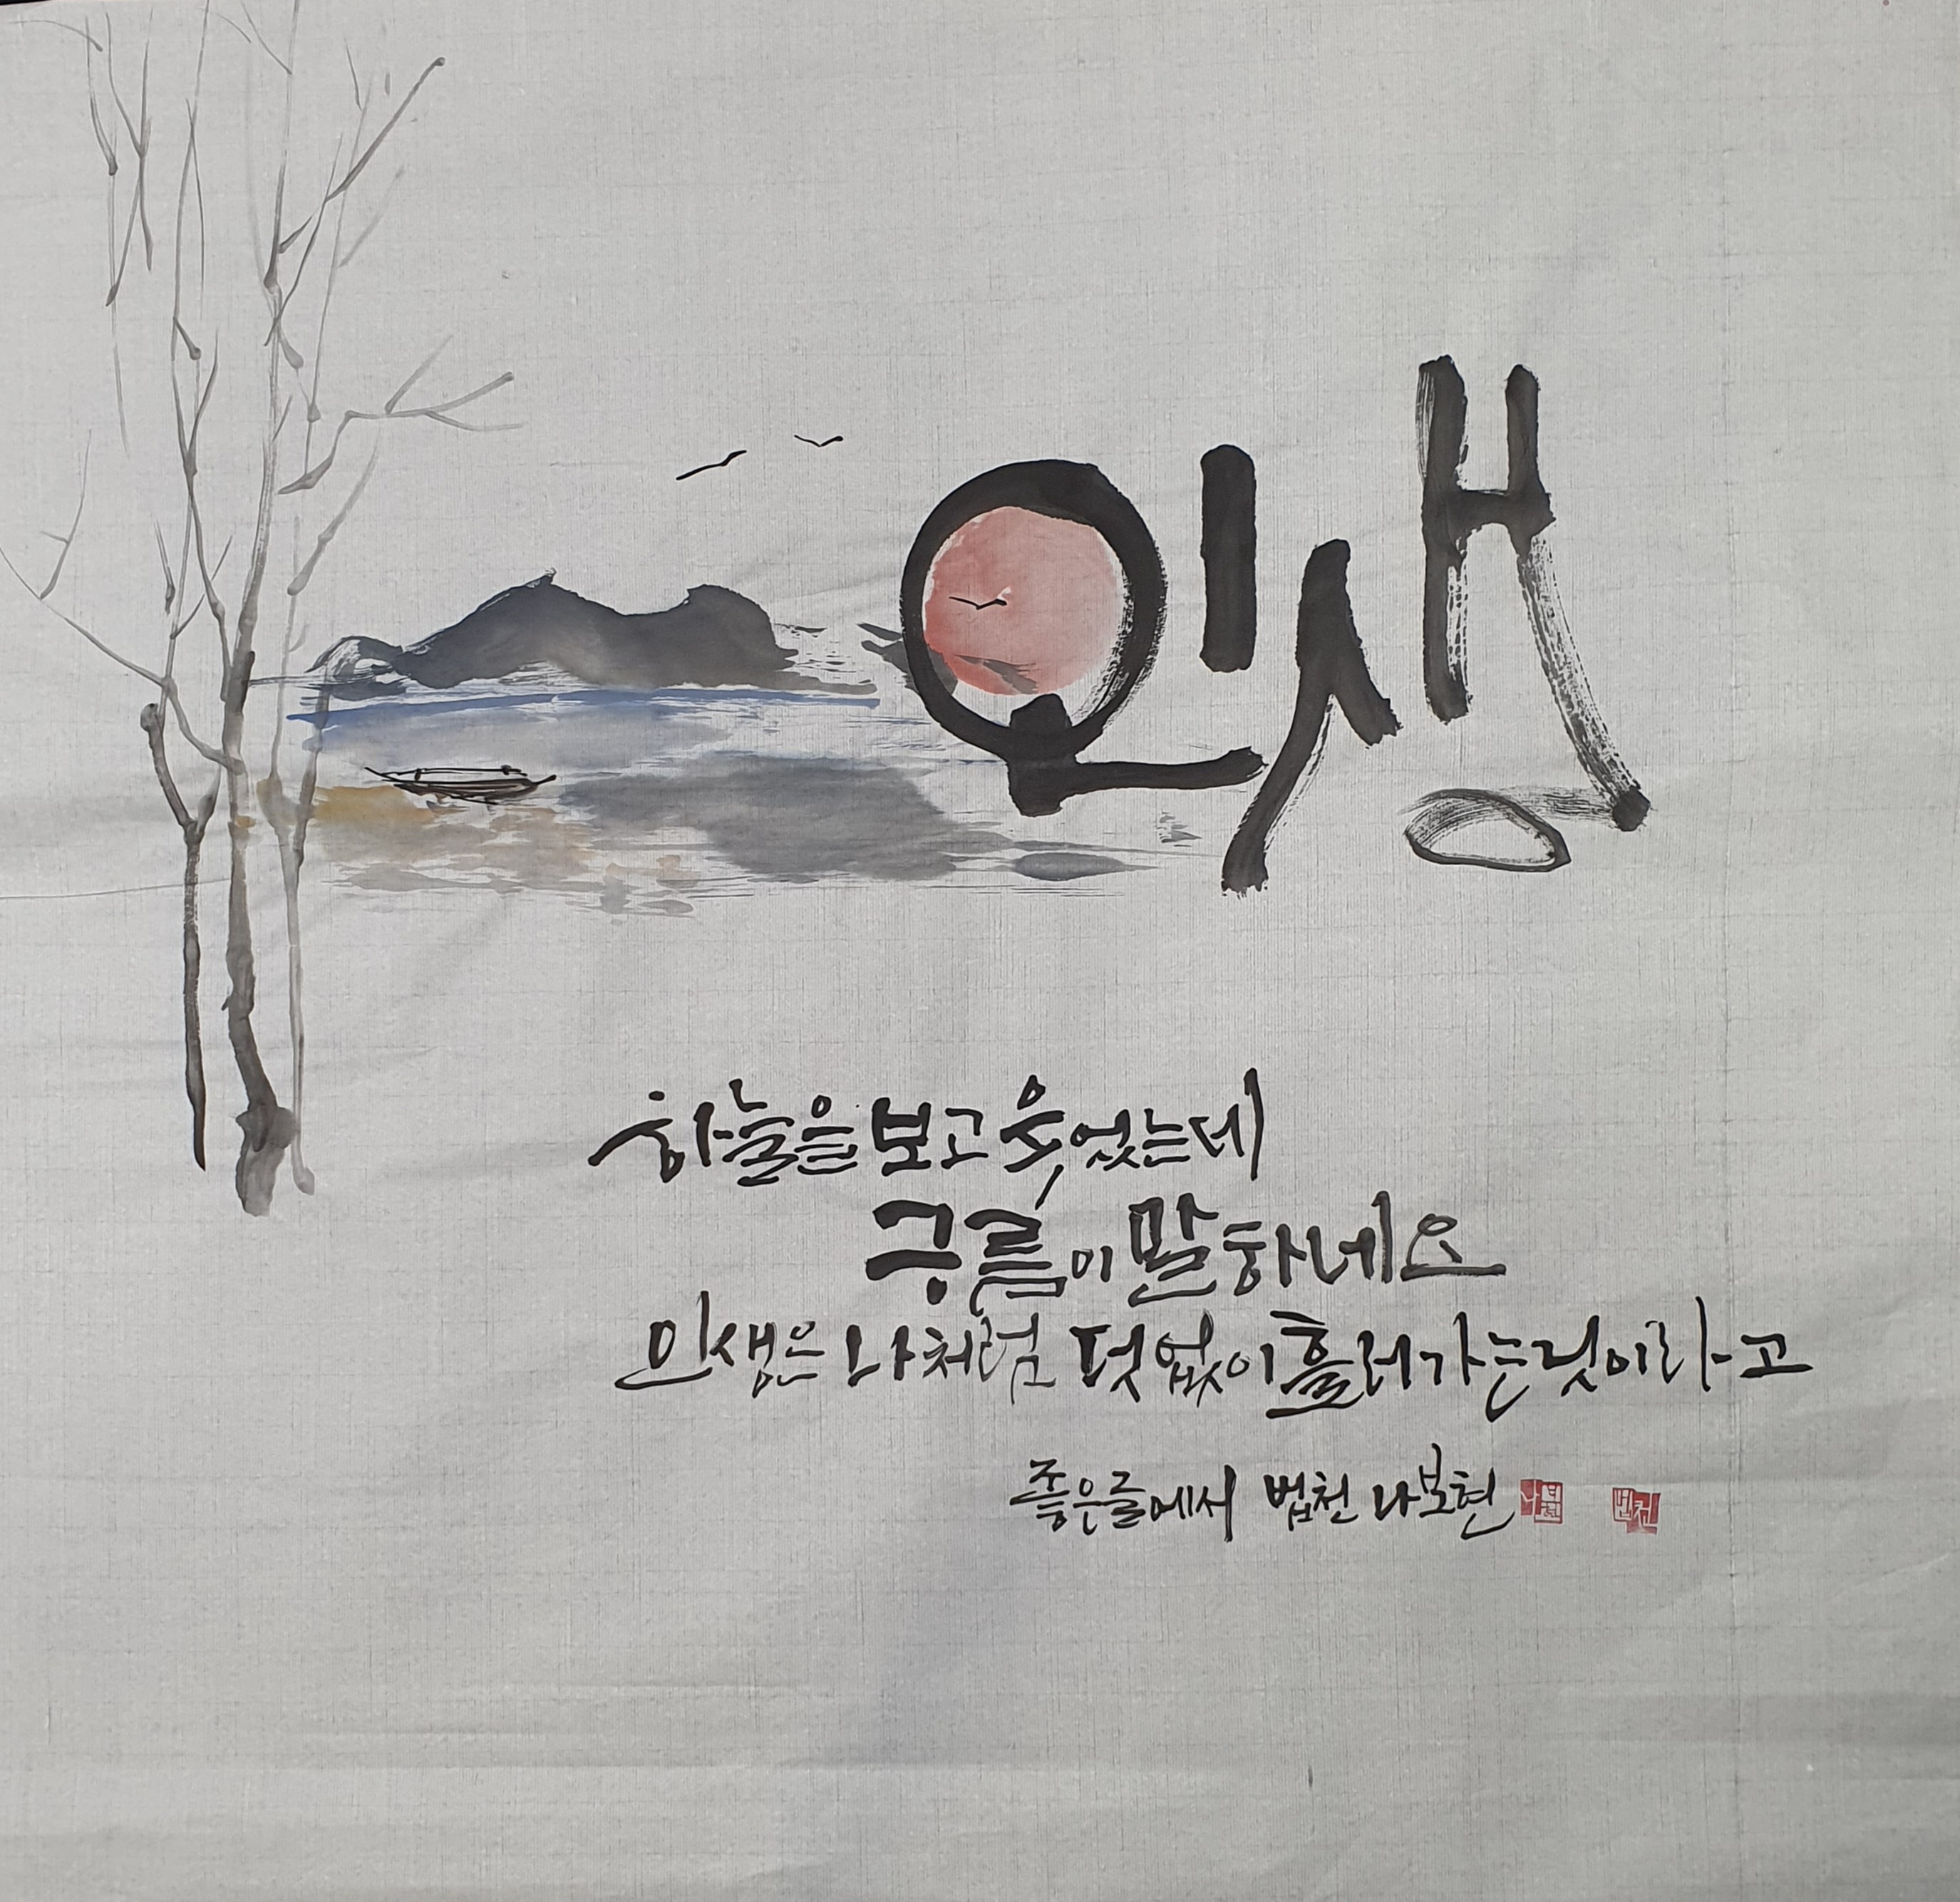 인생
하늘을 보고 웃었는데
구름이 말하네요
인생은 나처럼 덧없이 흘러가는 것이라고
좋은글에서 법천 나보현
나보현
법천